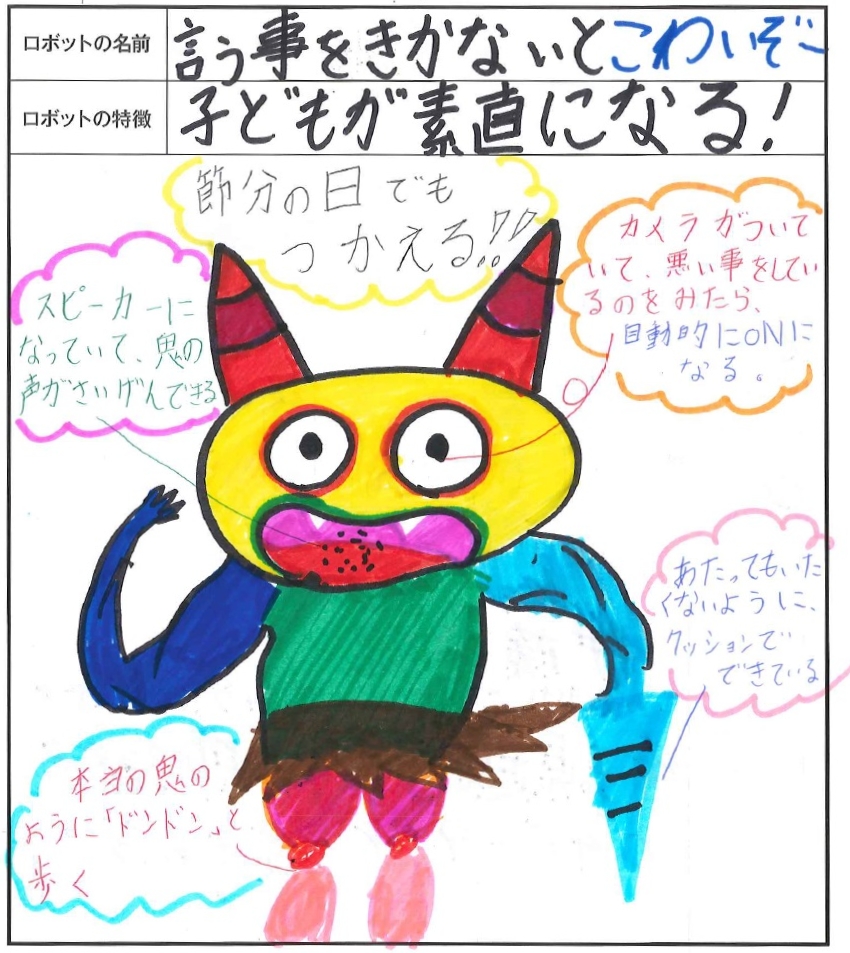 ロボットの名前
言う事をきかないとこわいぞー
ロボットの特徴
子どもが素直になる!
節分の日でも
つかえる!!
カメラがついて
いて、悪い事をしてい
るのをみたら、
自動的にONに
なる。
スピーカーに
なっていて、鬼の
声がさいげんできる
あたってもいた
くないように、
クッションで
できている
本当の鬼の
ように「ドンドン」と
歩く